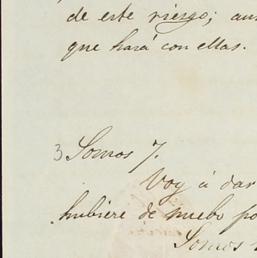 de este riesgo; aun
que hará con ellas.
3 Somos 7.
Voy á dar
hubiere de nuebo po
Somos